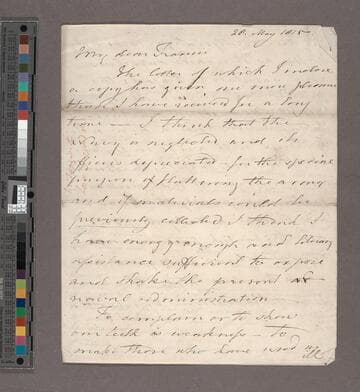 28 May 1815
My dear Francis
The letter of which I inclose
a copy has given me more pleasure
than I have received for a long
time — I think that the
Navy is neglected and its
officers depreciated for the special
purpose of flattering the army
and if materials could be
previously collected I think I
have energy enough and literary
assistance sufficient to expose
and shake the present
naval administration
To complain or to shew
our teeth is weakness — to
make those who have used us ill